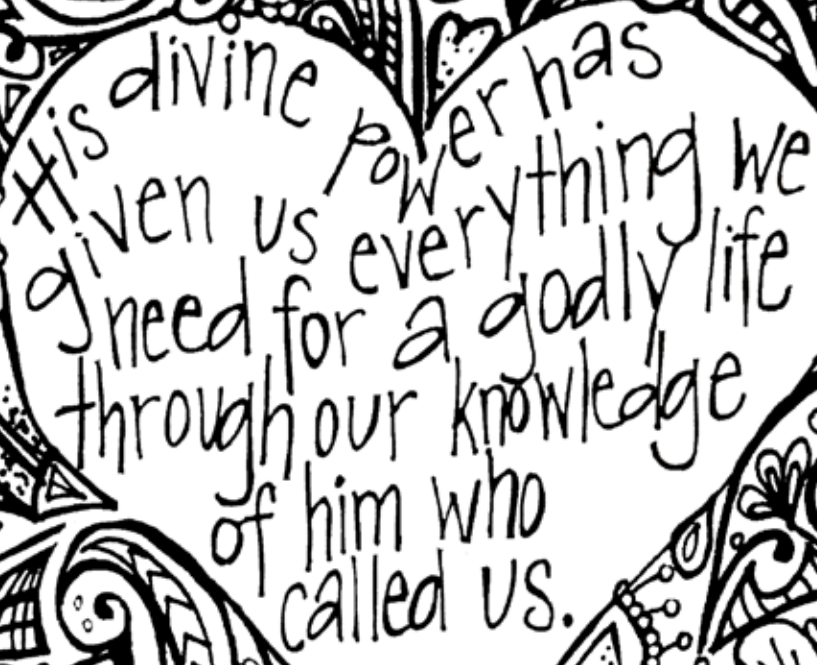 His divine power has
given us everything we
need for a godly life
through our knowledge
of him who
called us.